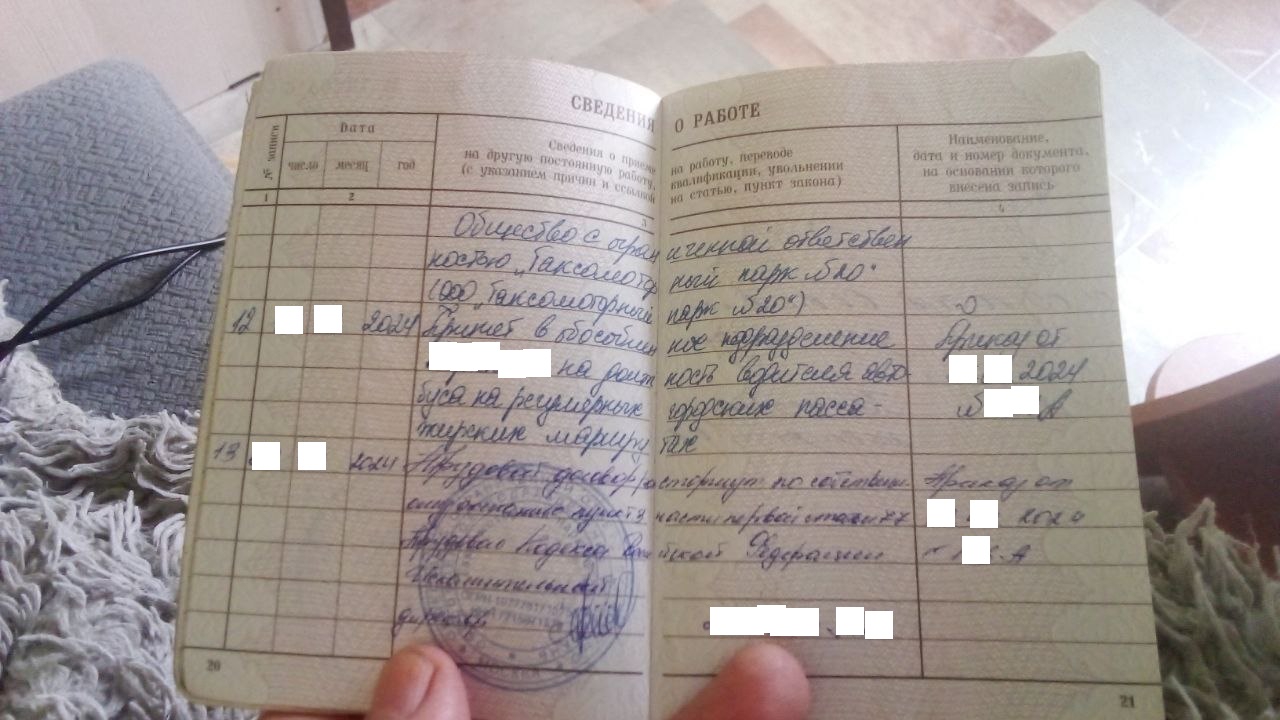 СВЕДЕНИЯ О РАБОТЕ
№ записи
Дата
число месяц год
Сведения о приеме на работу, переводе
на другую постоянную работу, квалификации, увольнении
(с указанием причин и ссылкой на статью, пункт закона)
Наименование,
дата и номер документа,
на основании которого
внесена запись
1 2 3 4
Общество с ограниченной ответствен
ностью „Таксомоторный парк №20"
(ООО „Таксомоторный парк №20")
12 2024 Принят в обособленное подразделение Приказ от
на должность водителя авто- 2024
буса на регулярных городских пасса- №
жирских маршрутах
13 2024 Трудовой договор расторгнут по собствен Приказ от
пункт 3 части первой статьи 77 2024
Трудового Кодекса Российской Федерации
Исполнительный
директор
20
21